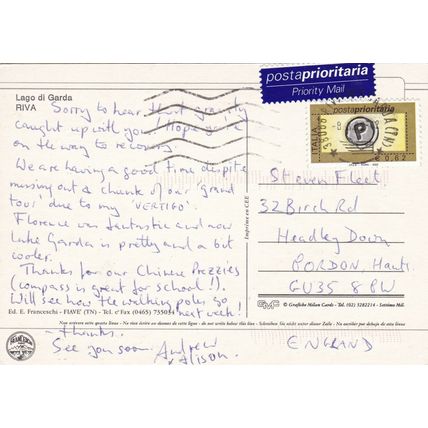 postaprioritaria
Priority Mail
Lago di Garda
RIVA
postaprioritaria
ITALIA
P
€ 0,62
Sorry to hear that gravity
caught up with you. Hope you're
on the way to recovery.
We are having a good time despite
missing out a chunk of our 'grand
tour' due to my 'VERTIGO'.
Florence was fantastic and now
Lake Garda is pretty and a bit
cooler.
Thanks for our Chinese Prezzies
(compass is great for school!).
Will see how the walking poles go
next week!
Thanks.
See you soon. Andrew
& Alison.
Steven Fleet
32 Birch Rd
Headley Down
BORDON, Hants
GU35 8PW
ENGLAND
Imprimé en CEE
© Grafiche Milan Cards - Tel. (02) 5282214 - Settimo Mil.
Ed. E. Franceschi - FIAVE' (TN) - Tel. e Fax (0465) 755054
Non scrivere sotto questa linea - Ne rien écrire au dessous de cette ligne - do not write below this line